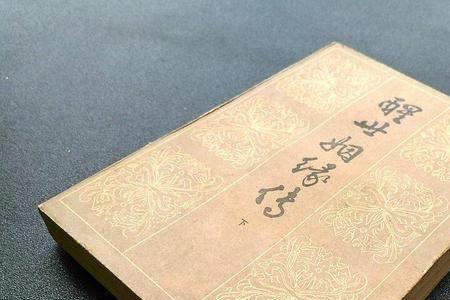 醒世姻缘传
下